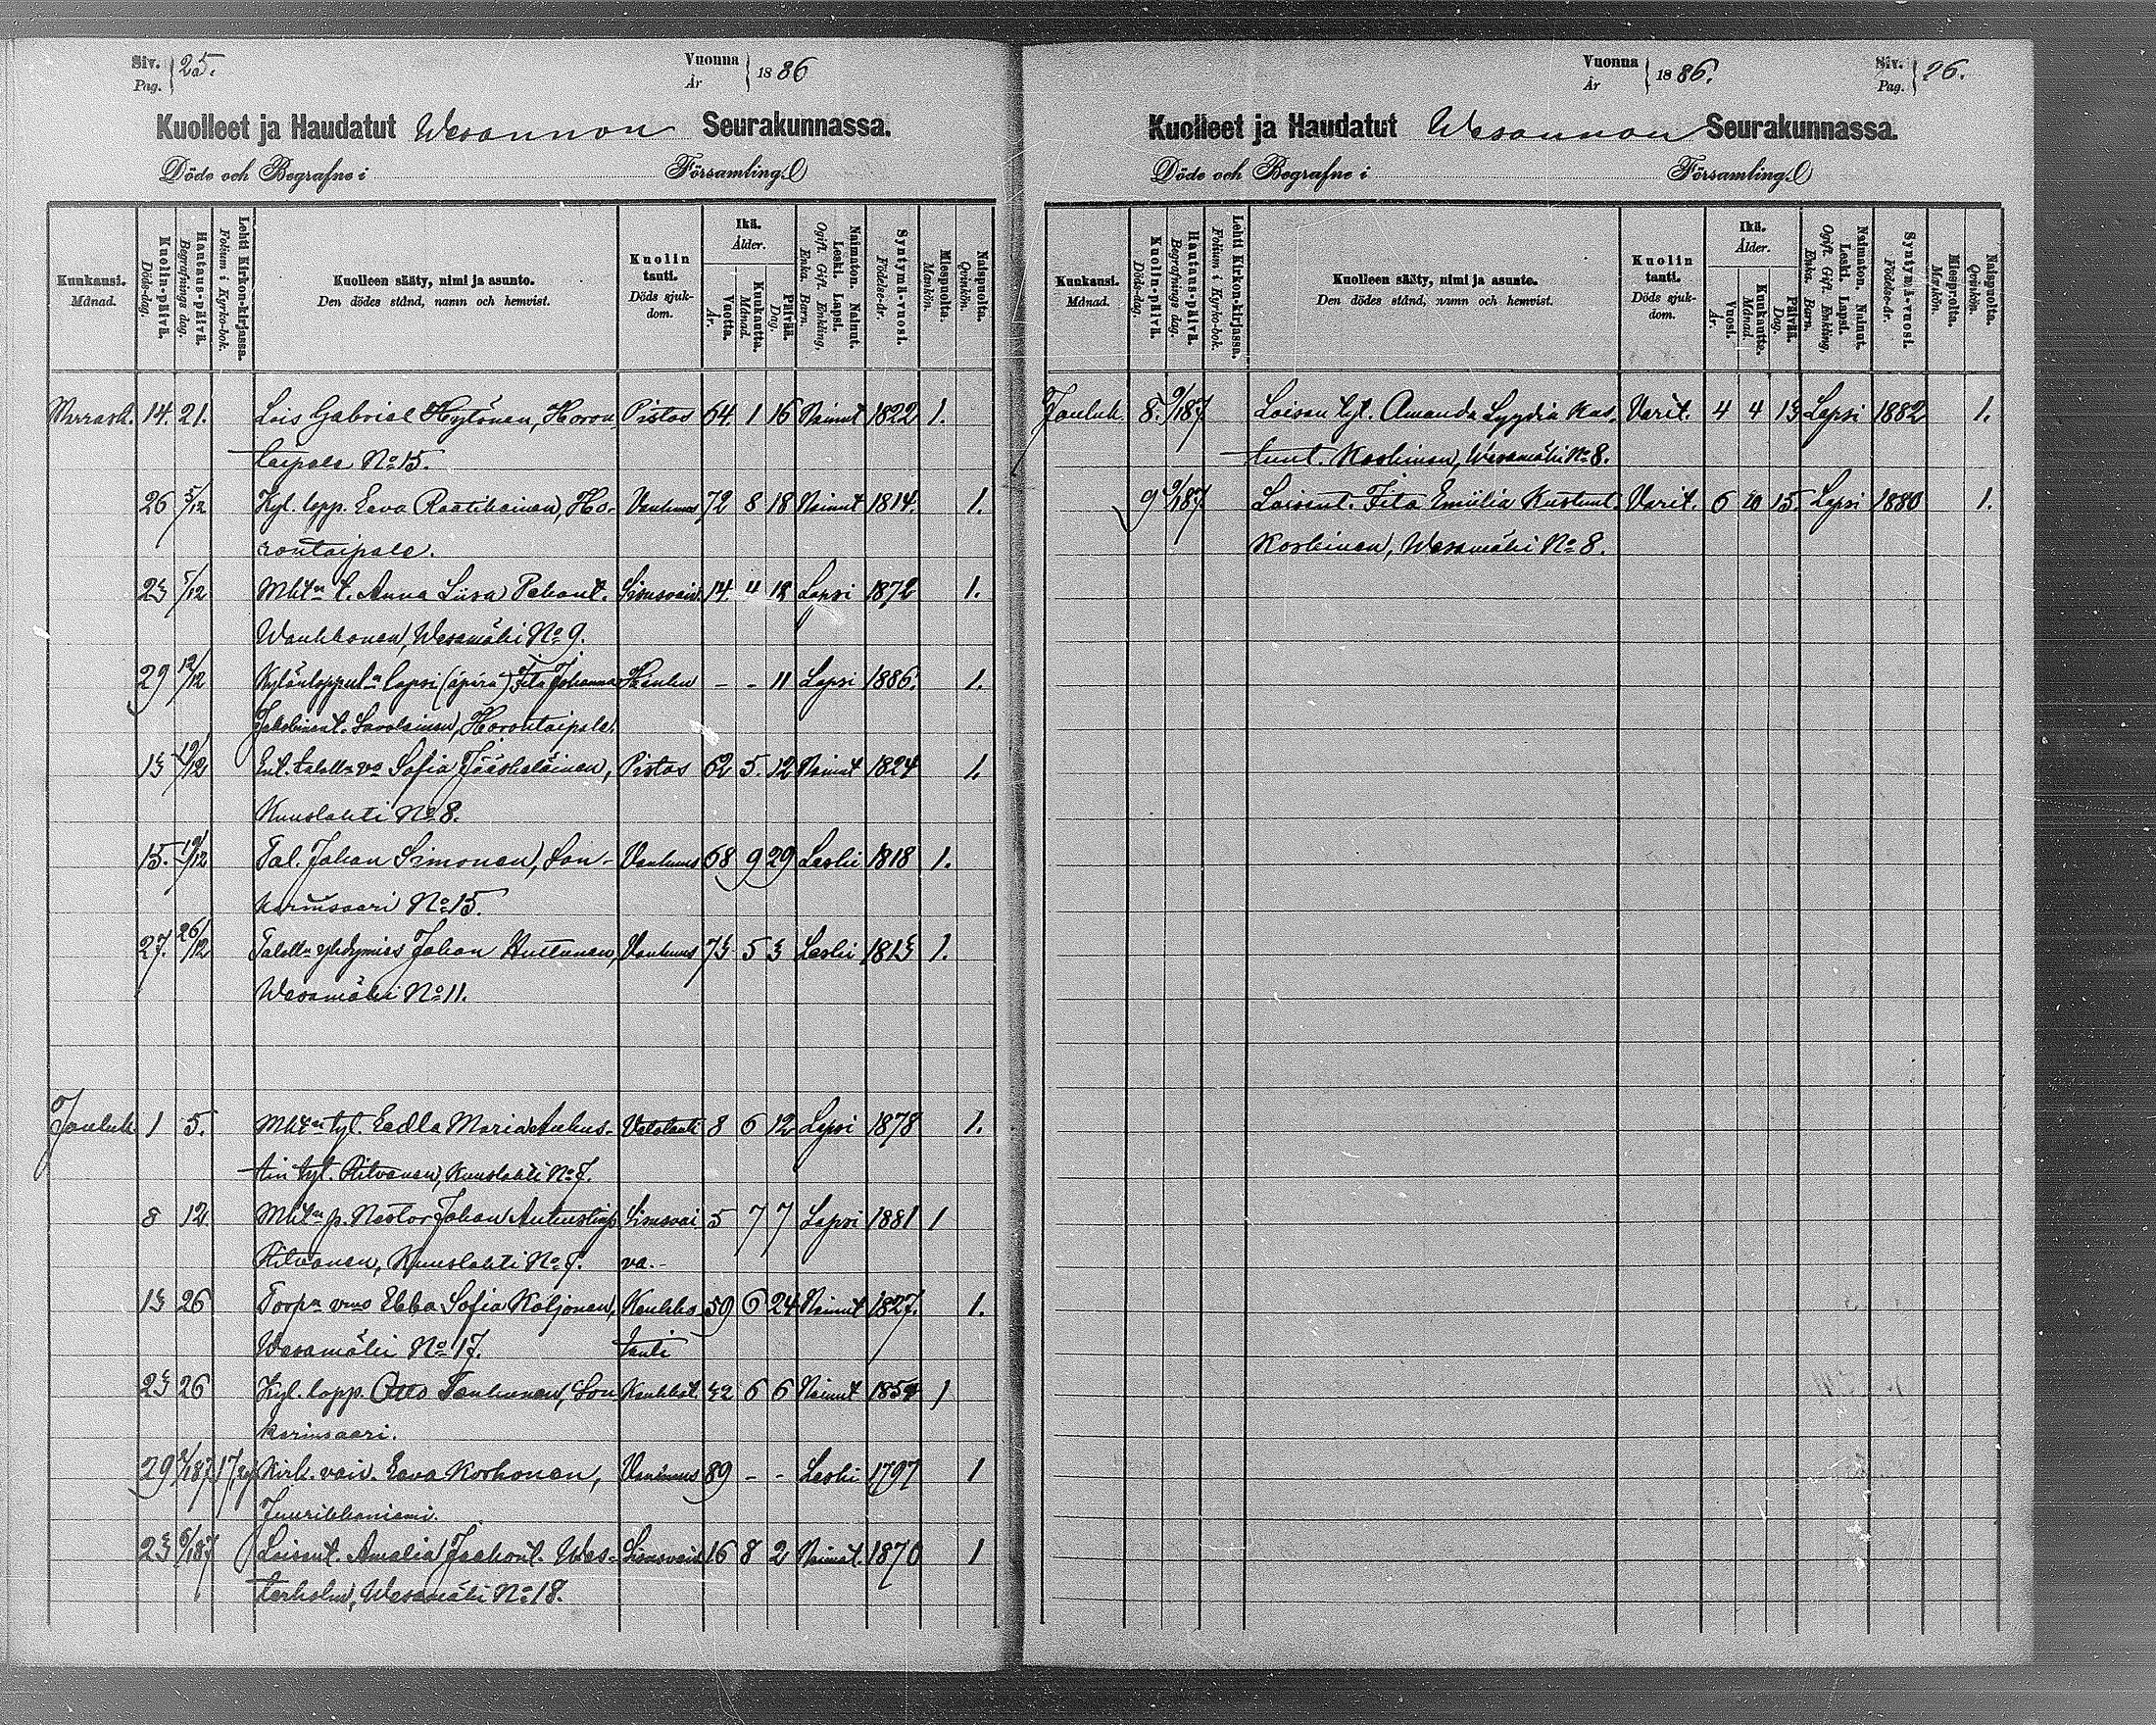 Siv. Pag. 25. Vuonna År 1886
Kuolleet ja Haudatut Wesannon Seurakunnassa.
Döde och Begrafne i Församling.
Kuukausi. Månad. Kuolin-päivä. Döds-dag. Hautaus-päivä. Begrafnings dag. Lehti Kirkon-kirjassa. Folium i Kyrko-bok. Kuolleen sääty, nimi ja asunto. Den dödes stånd, namn och hemvist. Kuolin tauti. Döds sjukdom. Ikä. Ålder. Vuotta. År. Kuukautta. Månad. Päivää. Dag. Naimaton. Nainut. Leski. Lapsi. Ogift. Gift. Enkling, Enka. Barn. Syntymä-vuosi. Födelse-år. Miespuolta. Mankön. Naispuolta. Qvinkön.
Marrask. 14. 21. Lois Gabriel Hytönen, Horon- Pistos 64. 1 16 Nainut 1822 1.
taipale No 15.
26 5/12 Kyl. lopp. Eeva Raatikainen, Ho- Vanhuus 72 8 18 Nainut 1814. 1.
rontaipale.
23 5/12 Mktn t. Anna Liisa Pekant. 14. 4 18 Lapsi 1872 1.
Wauhkonen, Wesamäki No 9.
29 12/12 lapsi (äpärä) Fita Johanna - - 11 Lapsi 1886. 1.
Jakobinat. Savolainen, Horontaipale.
13 19/12 Sofia Jääskeläinen, Pistos 62 5. 12 Nainut 1824 1.
Kuuslahti No 8.
15. 19/12 Tal. Johan Simonen, Son- Vanhuus 68 9 29 Leski 1818 1.
karinsaari No 15.
27. 26/12 Talolln yhdysmies Johan Huttunen, Vanhuus 73 5 3 Leski 1813 1.
Wesamäki No 11.
Jouluk 1 5. Mktn tyt. Eedla Maria Aukus- 8 6 12 Lapsi 1878 1.
tin tyt. Ritvanen, Kuuslahti No 7.
8 12 Mktn p. Nestor Johan Aukustinp. 5 7 7 Lapsi 1881 1
Ritvanen, Kuuslahti No 7. va.-
13 26 Torpn vmo Ebba Sofia Koljonen, Keuhko 59 6 24 Nainut 1827. 1.
Wesamäki No 17. tauti
23 26 Kyl. lopp. Otto Tenhunen, Son- Keuhkot. 32 6 6 Nainut 1854 1
karinsaari.
29 2/1 87 Kirk. vaiv. Eeva Korhonen, Vanhuus 89 - - Leski 1797 1
Juurikkaniemi.
23 6/1 87 Loisent. Amalia Jaakont. Wes- 16 8 2 Naimat. 1870 1
terholm, Wesamäki No 18.
Vuonna År 1886. Siv. Pag. 26.
Kuolleet ja Haudatut Wesannon Seurakunnassa.
Döde och Begrafne i Församling.
Kuukausi. Månad. Kuolin-päivä. Döds-dag. Hautaus-päivä. Begrafnings dag. Lehti Kirkon-kirjassa. Folium i Kyrko-bok. Kuolleen sääty, nimi ja asunto. Den dödes stånd, namn och hemvist. Kuolin tauti. Döds sjukdom. Ikä. Ålder. Vuosi. År. Kuukautta. Månad. Päivää. Dag. Naimaton. Nainut. Leski. Lapsi. Ogift. Gift. Enkling, Enka. Barn. Syntymä-vuosi. Födelse-år. Miespuolta. Mankön. Naispuolta. Qvinkön.
Jouluk 8. 9/1 87 Loisen tyt. Amanda Lyydia Kus- Verit. 4 4 13 Lapsi 1882 1.
tunt. Koskinen, Wesamäki No 8.
9 9/1 87 Loisent. Fita Emiilia Kustunt. Verit. 6 10 15. Lapsi 1880 1.
Koskinen, Wesamäki No 8.